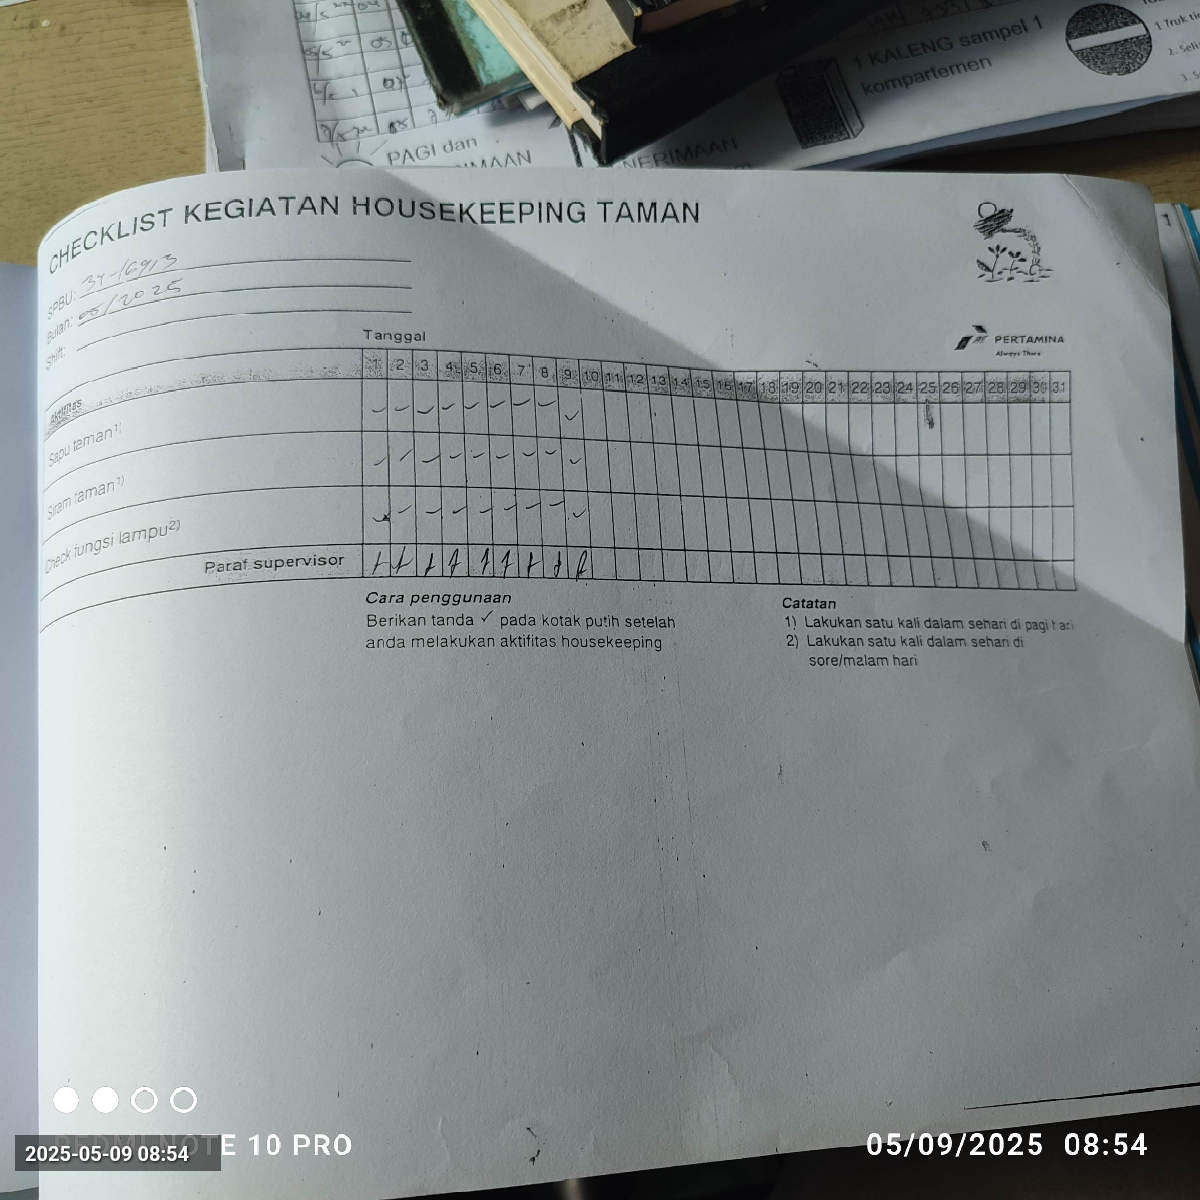 1 KALENG sampel 1
kompartemen
PAGI dan
CHECKLIST KEGIATAN HOUSEKEEPING TAMAN
SPBU: 34-16913
Bulan: 05/2025
Shift:
PERTAMINA
Always There
Tanggal
Aktifitas 1 2 3 4 5 6 7 8 9 10 11 12 13 14 15 16 17 18 19 20 21 22 23 24 25 26 27 28 29 30 31
Sapu taman1)
Siram taman1)
Check fungsi lampu2)
Paraf supervisor
Cara penggunaan
Berikan tanda ✓ pada kotak putih setelah
anda melakukan aktifitas housekeeping
Catatan
1) Lakukan satu kali dalam sehari di pagi hari
2) Lakukan satu kali dalam sehari di
sore/malam hari
REDMI NOTE 10 PRO
2025-05-09 08:54
05/09/2025 08:54